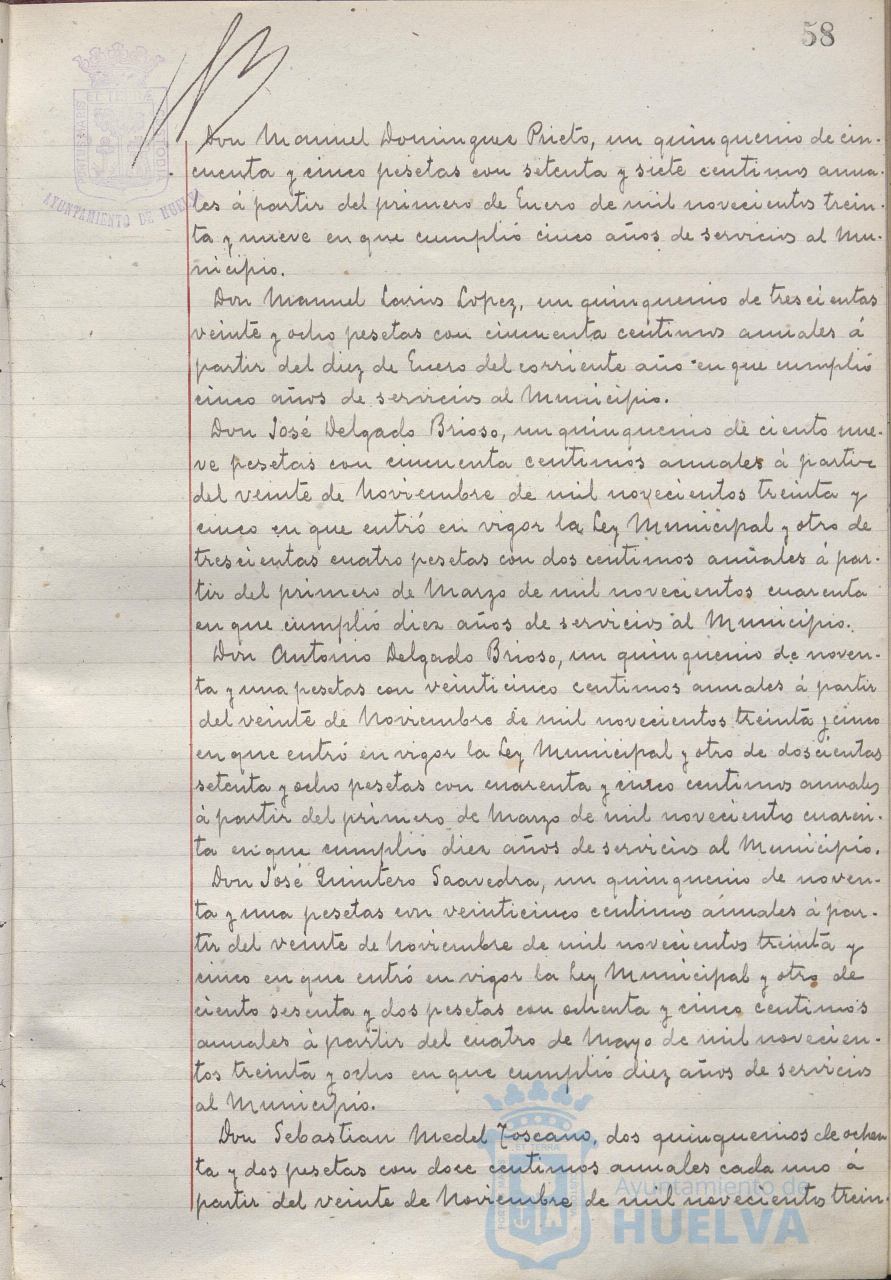 58
EL TERRA
AYUNTAMIENTO DE HUELVA
Don Manuel Dominguez Prieto, un quinquenio de cin-
cuenta y cinco pesetas con setenta y siete centimos anua-
les á partir del primero de Enero de mil novecientos trein-
ta y nueve en que cumplió cinco años de servicios al Mu-
nicipio.
Don Manuel Larios Lopez, un quinquenio de trescientas
veinte y ocho pesetas con cincuenta centimos anuales á
partir del diez de Enero del corriente año en que cumplió
cinco años de servicios al Municipio.
Don José Delgado Brioso, un quinquenio de ciento nue-
ve pesetas con cincuenta centimos anuales á partir
del veinte de Noviembre de mil novecientos treinta y
cinco en que entró en vigor la Ley Municipal y otro de
trescientas cuatro pesetas con dos centimos anuales á par-
tir del primero de Marzo de mil novecientos cuarenta
en que cumplió diez años de servicios al Municipio.
Don Antonio Delgado Brioso, un quinquenio de noven-
ta y una pesetas con veinticinco centimos anuales á partir
del veinte de Noviembre de mil novecientos treinta y cinco
en que entró en vigor la Ley Municipal y otro de doscientas
setenta y ocho pesetas con cuarenta y cinco centimos anuales
á partir del primero de Marzo de mil novecientos cuaren-
ta en que cumplió diez años de servicios al Municipio.
Don José Quintero Saavedra, un quinquenio de noven-
ta y una pesetas con veinticinco centimos anuales á par-
tir del veinte de Noviembre de mil novecientos treinta y
cinco en que entró en vigor la Ley Municipal y otro de
ciento sesenta y dos pesetas con ochenta y cinco centimos
anuales á partir del cuatro de Mayo de mil novecien-
tos treinta y ocho en que cumplió diez años de servicios
al Municipio.
Don Sebastian Medel Toscano, dos quinquenios de ochen
ta y dos pesetas con doce centimos anuales cada uno á
partir del veinte de Noviembre de mil novecientos trein-
Ayuntamiento de
HUELVA